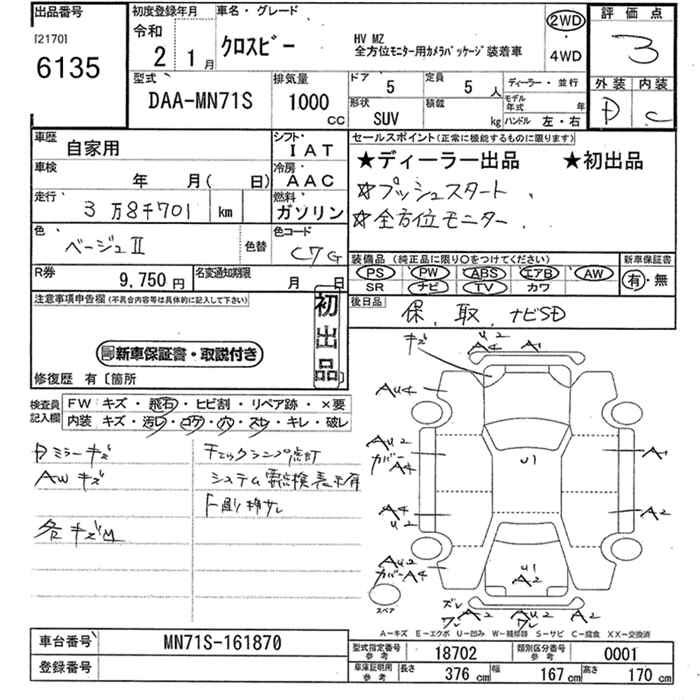 出品番号
[2170]
6135
初度登録年月
令和
2 1月
車名・グレード
クロスビー
HV MZ
全方位モニター用カメラパッケージ装着車
2WD
・
4WD
評価点
3
外装 内装
D C
型式
DAA-MN71S
排気量
1000
CC
ドア
5
定員
5 人
形状
SUV
積載
kg
ディーラー・並行
モデル年式 年
ハンドル 左・右
車歴
自家用
シフト
IAT
車検
年 月( 日)
冷房
AAC
走行
3万8千701 km
燃料
ガソリン
色
ベージュII
色替
色コード
C7G
R券
9,750円
名変通知期限
月 日
セールスポイント(正常に機能するものに限ります)
★ディーラー出品 ★初出品
☆プッシュスタート
☆全方位モニター
装備品 (純正品に限り○をつけてください)
PS PW ABS エアB AW
SR ナビ TV カワ
新車保証書
有・無
後日品
保、取、ナビSD
注意事項申告欄(不具合内容等は具体的に記入して下さい)
初出品
新車保証書・取説付き
修復歴 有〔箇所
検査員記入欄
FW キズ・飛石・ヒビ割・リペア跡・×要
内装 キズ・汚レ・コゲ・穴・スレ・キレ・破レ
Dミラーキズ
AWキズ
各キズM
チェックランプ点灯
システム要点検表示有
キズ
U2
A4
A1
AU4
AU2
カバーA4
A1
U1
A4
U2
A2
AU2
カバーA4
U1
A2
スペア
ズレ
ワレ
AU2
A2
ワレ
A2
A-キズ E-エクボ U-凹み W-補修跡 S-サビ C-腐食 XX-交換済
車台番号
MN71S-161870
登録番号
型式指定番号
参考
18702
類別区分番号
参考
0001
車庫証明用
参考
長さ 376 cm 幅 167 cm 高さ 170 cm